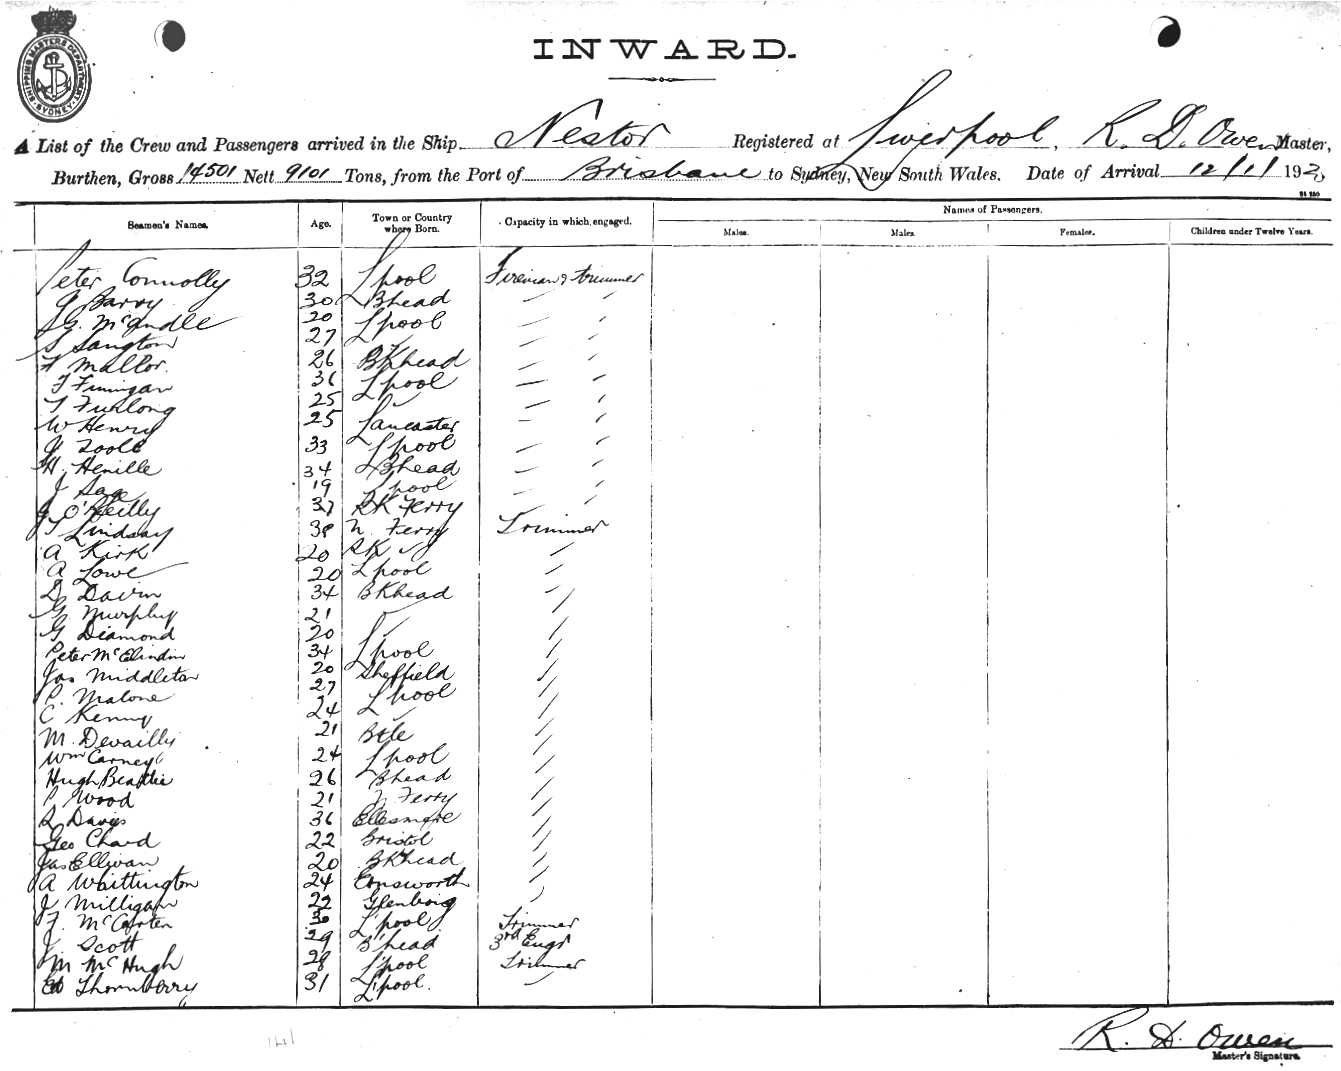 SHIPPING MASTERS DEPARTMENT SYDNEY
INWARD.
A List of the Crew and Passengers arrived in the Ship Nestor Registered at Liverpool, R. D. Owen Master,
Burthen, Gross 14501 Nett 9101 Tons, from the Port of Brisbane to Sydney, New South Wales. Date of Arrival 12/1/192
Seamen's Names. Age. Town or Country where Born. Capacity in which engaged. Names of Passengers.
Males. Males. Females. Children under Twelve Years.
Peter Connolly 32 L'pool Fireman & Trimmer
J Barry 30 Bhead
McArdle 20 L'pool
S Sangton 27
F Mallor. 26 BKhead
F Finnigan 36 L'pool
T Furlong 25
W Henry 25 Lancaster
J Toole 33 L'pool
H. Henille 34 Bhead
J Sage 19 L'pool
J O'Reilly 37 RK Ferry
T Lindsay 38 N. Ferry Trimmer
A Kirk 20 RK
A Lowe 20 L'pool
D 34 BKhead
G Murphy 21
G Diamond 20
Peter 34 L'pool
Jas Middleton 20 Sheffield
P. Malone 27 L'pool
C Kenny 24
M. Devailly 21 Bole
Wm Carney 24 L'pool
Hugh Beattie 26 Bhead
P Wood 21 N Ferry
R Davis 36 Ellesmere
Geo Chard 22 Bristol
Jas Ellwan 20 BKhead
A Whittington 24
J Milligan 22 Glenboig
F. McCarten 30 L'pool Trimmer
J Scott 29 B'head 3rd Engr
M McHugh 28 L'pool Trimmer
Ed Thornberry 31 L'pool.
141
R. D. Owen
Master's Signature.